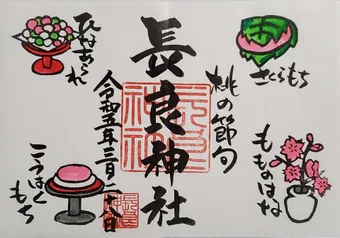 桃の節句
長良神社
令和五年三月二十八日
さくらもち
もものはな
ひなあられ
こうはくもち